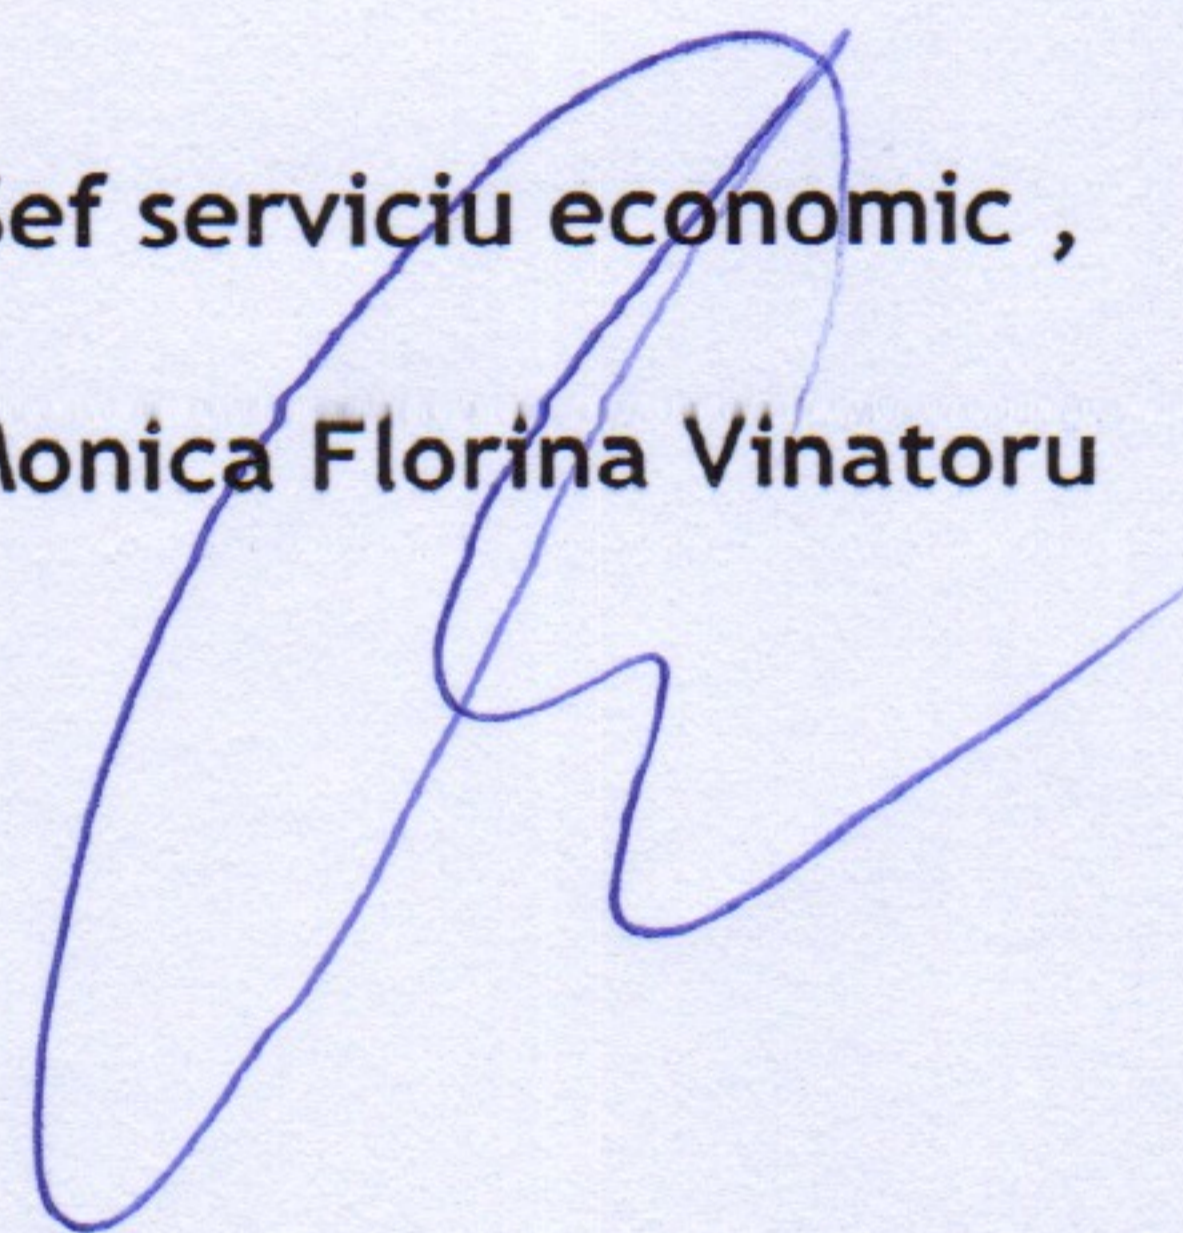 Sef serviciu economic ,
Monica Florina Vinatoru